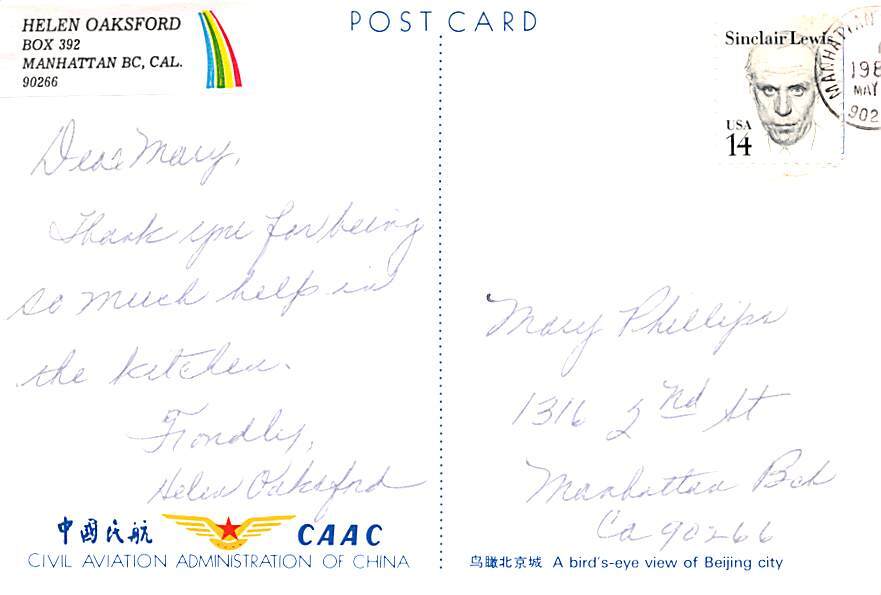 HELEN OAKSFORD
BOX 392
MANHATTAN BC, CAL.
90266
POST CARD
Sinclair Lewis
USA
14
MANHATTAN
198
MAY
902
Dear Mary,
Thank you for being
so much help in
the kitchen.
Frondly,
Helen Oaksford
Mary Phillips
1316 2nd St
Manhattan Bch
Ca 90266
中國民航 CAAC
CIVIL AVIATION ADMINISTRATION OF CHINA
鸟瞰北京城 A bird's-eye view of Beijing city